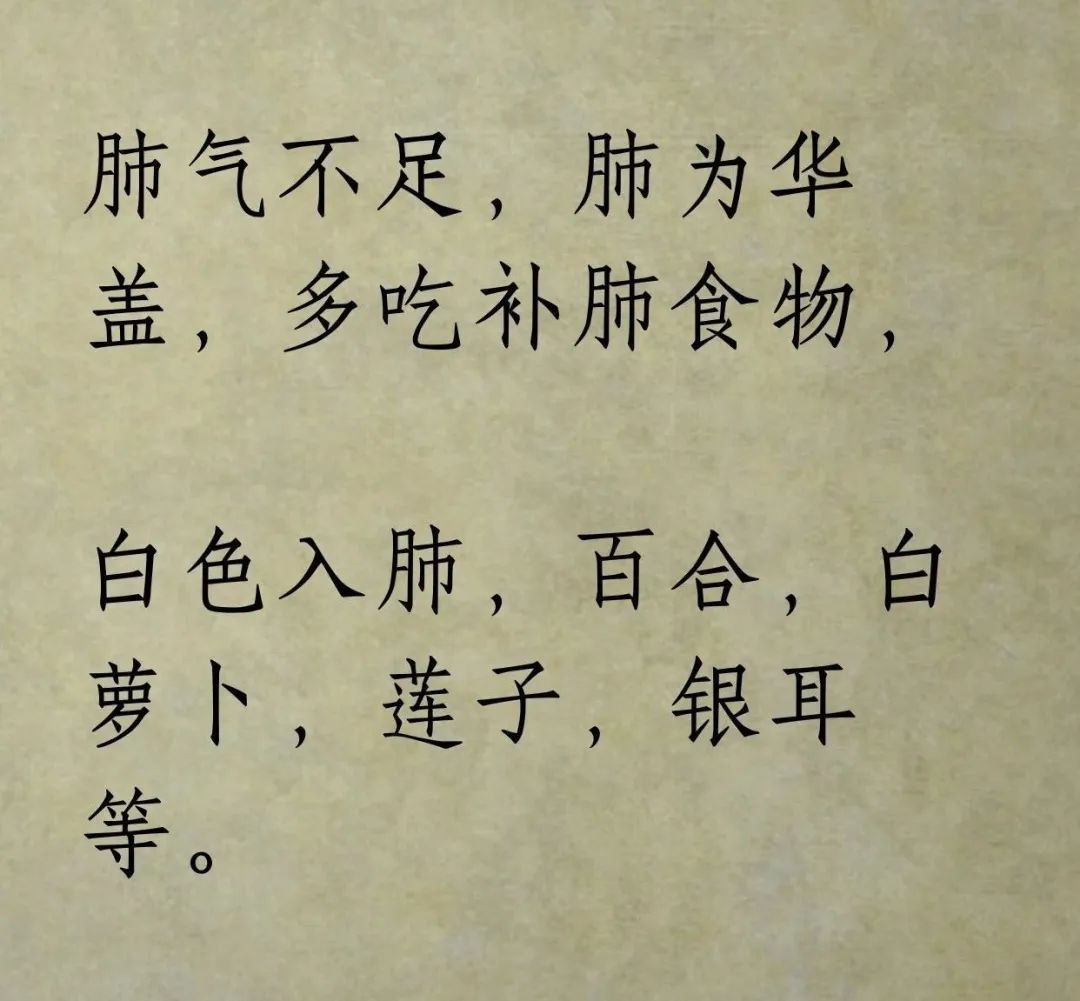 肺气不足，肺为华
盖，多吃补肺食物，
白色入肺，百合，白
萝卜，莲子，银耳
等。